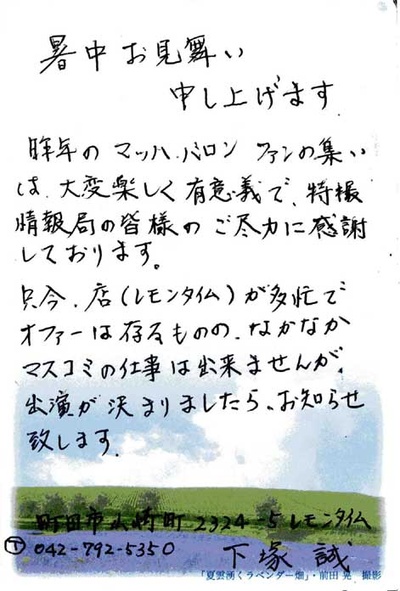 暑中お見舞い
申し上げます
昨年の マッハ.バロン ファンの集い
は、大変楽しく有意義で、特撮
情報局の皆様のご尽力に感謝
しております。
只今、店(レモンタイム)が多忙で
オファーは存るものの、なかなか
マスコミの仕事は出来ませんが、
出演が決まりましたら、お知らせ
致します.
町田市山崎町2324-5レモンタイム
T 042-792-5350 下塚 誠
「夏雲湧くラベンダー畑」・前田 晃 撮影